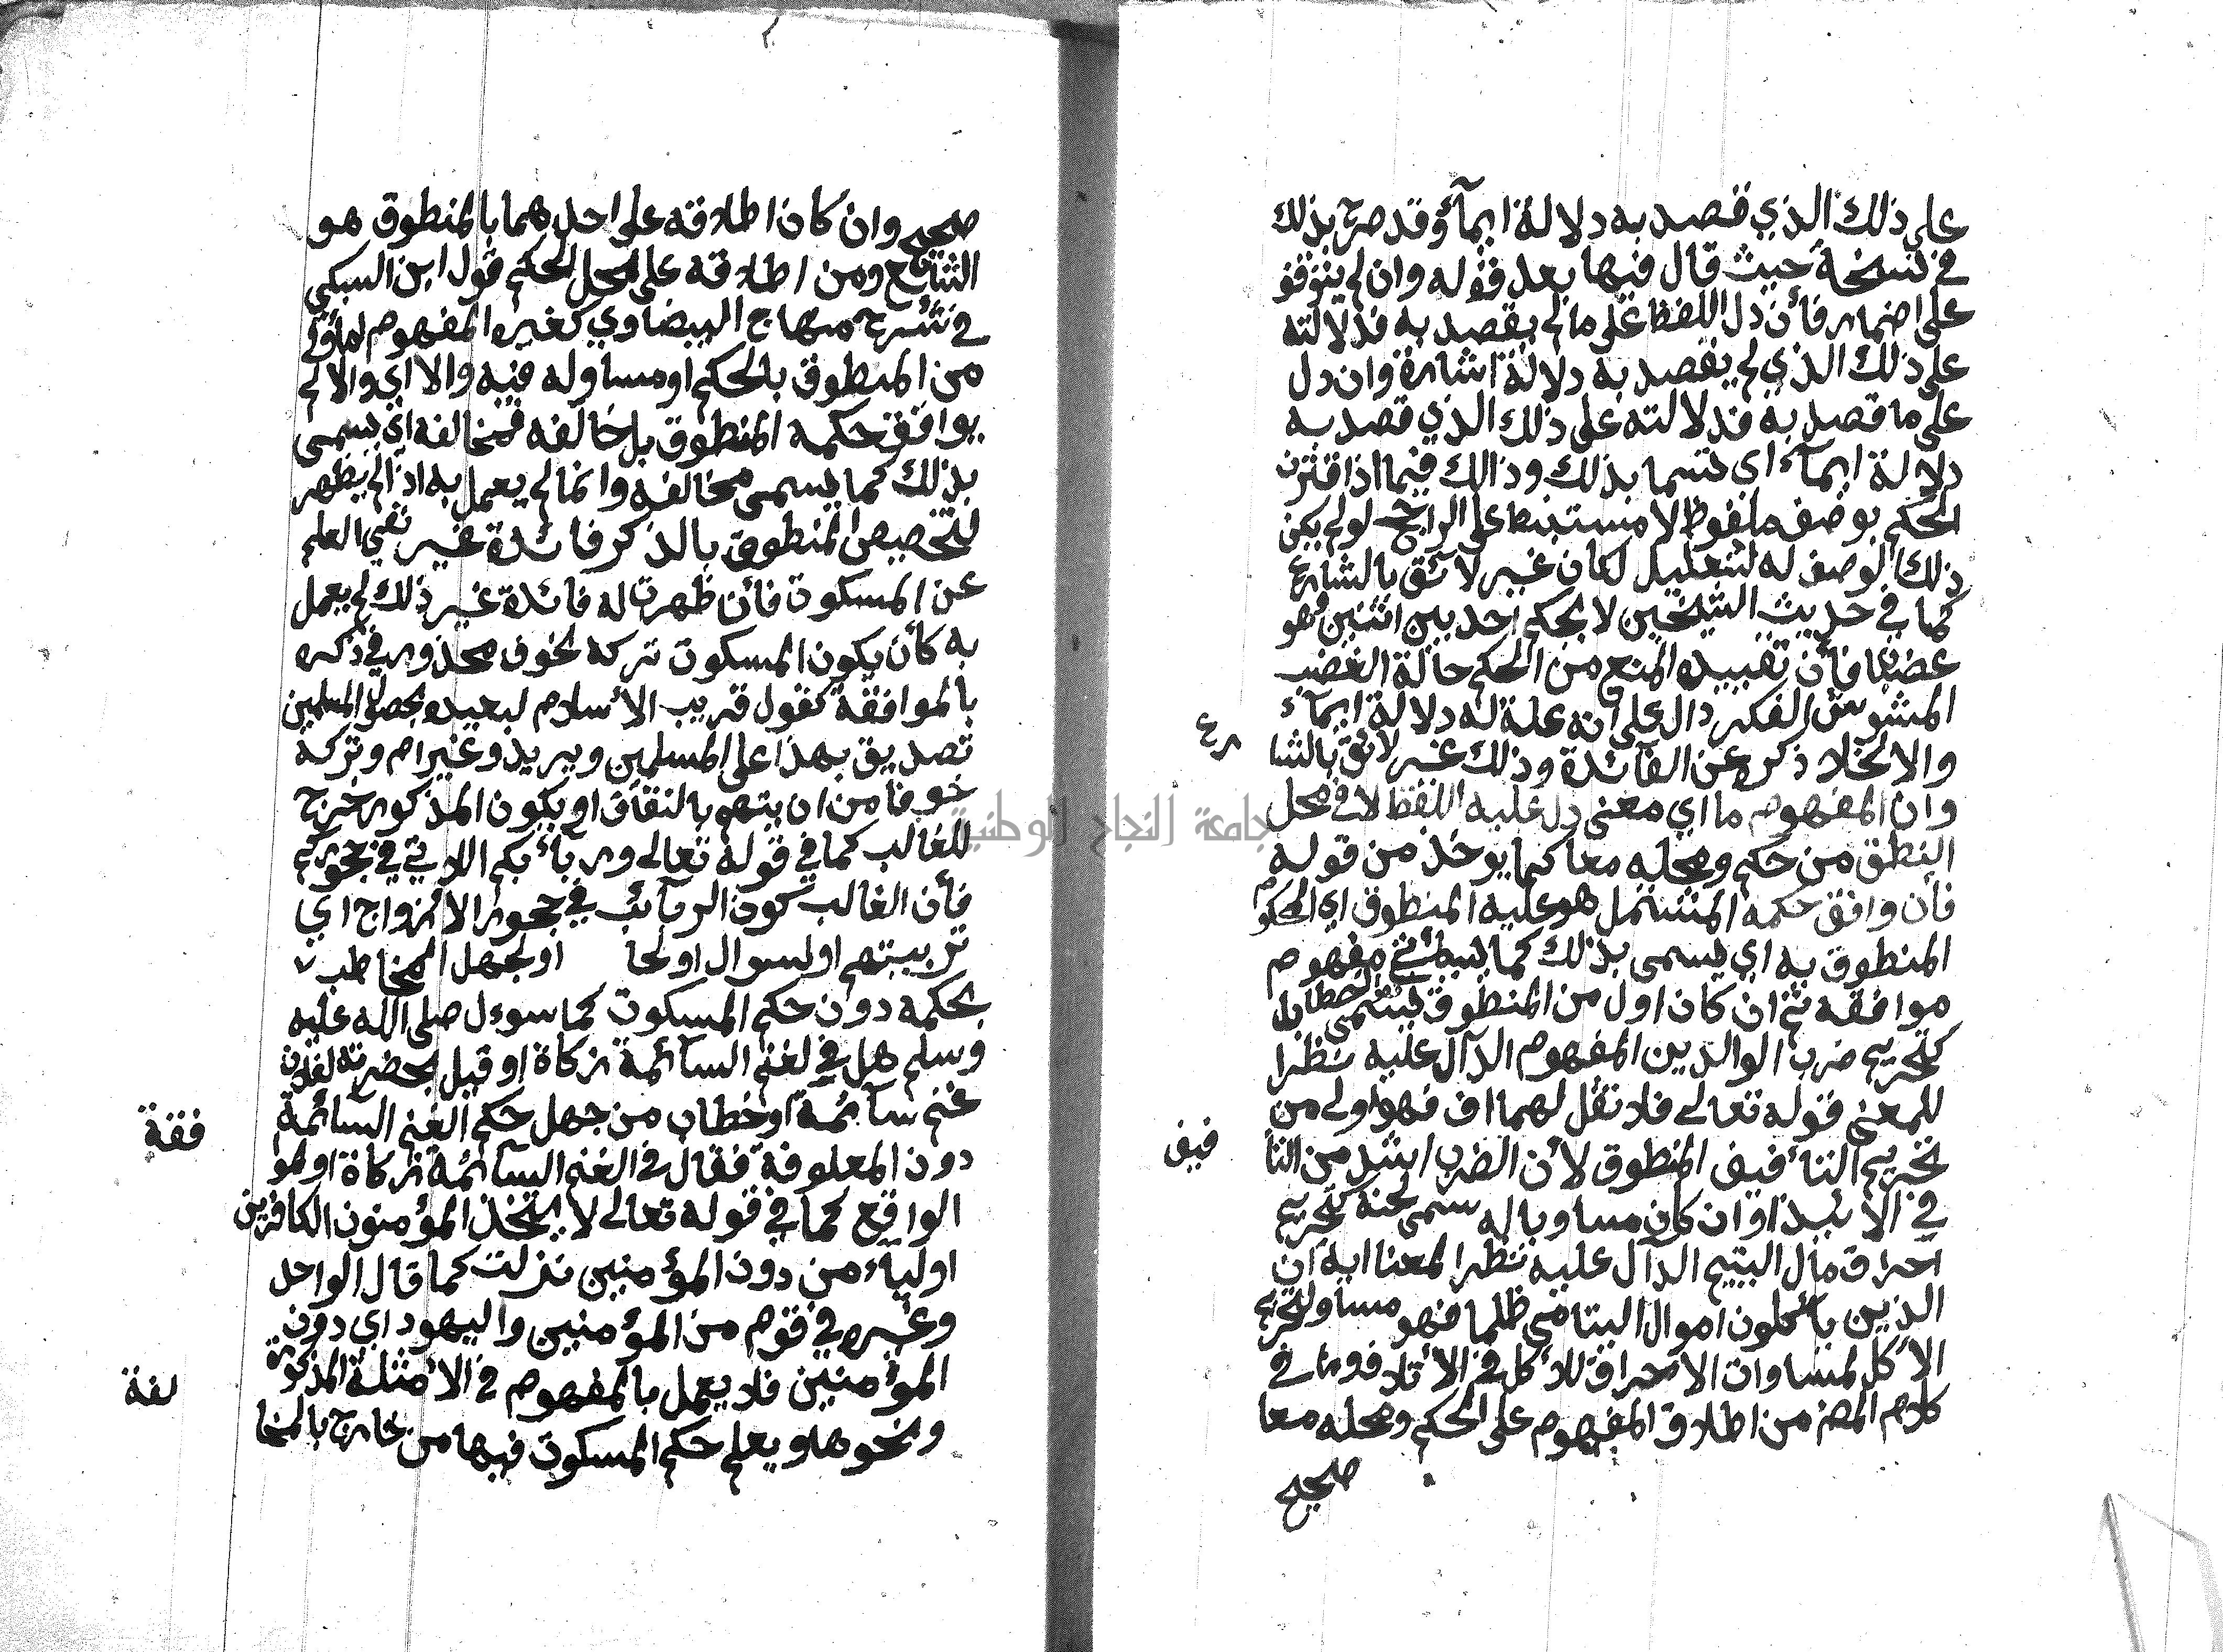 على ذلك الذي قصد به دلالة ايمآؤ قد صرح بذلك
في نسخة حيث قال فيها بعد قوله وان لم يتوقفو
على اضمار فأن دل اللفظ على مالم يقصد به فدلالته
على ذلك الذي لم يقصد به دلالة اشارة وان دل
على ما قصد به فدلالته على ذلك الذي قصد به
دلالة ايمآء اي تسما بذلك وذالك فيما اذا اقترن
الحكم بوصف ملفوظ لا مستنبط على الراجح لو لم يكن
ذلك الوصف له لتعليل لكان غير لائق بالشارع
كما في حديث الشيخين لا يحكم احد بين اثنين وهو
غضبان فأن تقييده المنع من الحكم حالة الغضب
المشوش الفكر دال على انه علة له دلالة ايمآء
والا لخلا ذكره عن الفآئدة وذلك غير لائق بالشا
رع
وان المفهوم ما اي معنى دل عليه اللفظ لا في محل
النطق من حكم ومحله معا كما يوخذ من قوله
فأن وافق حكمه المشتمل هو عليه المنطوق اي الحكوم
المنطوق به اي يسمى بذلك كما مفهوم
موافقه ثم ان كان اول من المنطوق يسمى الخطاب
كتحريم ضرب الوالدين المفهوم الدآل عليه نظرا
للمعنى قوله تعالى فلا تقل لهما اف فهو اولى من
تحريم التأفيف المنطوق لأن الضرب اشد من التأ
فيف
في الأيذا وان كان مساويا له سمى لحنه كتحريم
احراق مال اليتيم الدآل عليه نظرا لمعنا ايه ان
الذين يأكلون اموال اليتامى ظلما فهو مساو لتحريم
الأكل لمساوات الأحراق للأكل في الأتلاف وما في
كلام المصنف من اطلاق المفهوم على الحكم ومحله معا
صحيح
صحيح وان كان اطلاقه على احدهما بالمنطوق هو
الشائع ومن اطلاقه على محل الحكم قول ابن السبكي
في شرح منهاج البيضاوي كغيره المفهوم اما اولى
من المنطوق بالحكم او مساو له فيه والا اي والا لم
يوافق حكمه المنطوق بل خالفه فمخالفه اي يسمى
بذلك كما يسمى مخالفه وانما لم يعمل به اذالم يظهر
لتخصيص المنطوق بالذكر فائدة غير نفي العلم
عن المسكوت فأن ظهرت له فائدة غير ذلك لم يعمل
به كأن يكون المسكوت تركه لخوف محذور في ذكره
بالموافقة كقول قريب الأسلام لعبيده بحضور المسلمين
تصديق بهذا على المسلمين ويريد وغيرهم وتركه
خوفا من ان يتهم بالنفاق او يكون المذكور خرج
للغالب كما في قوله تعالى وربآئبكم اللاتي في حجوركم
فأن الغالب كون الربآئب في حجور الأزواج اي
تربيتهم او لسوال او لحا او لجهل المخاطب
بحكمه دون حكم المسكوت كما سوءل صلى الله عليه
وسلم هل في لغنم السآئمة زكاة او قيل بحضرته لفلان
غنم سآئمة او خطاب من جهل حكم الغنم السآئمة
دون المعلوفة فقال في الغنم السآئمة زكاة او لموا
فقة
الواقع كما في قوله تعالى لا يتخذ المؤمنون الكافرين
اولياء من دون المؤمنين نزلت كما قال الواحد
وغيره في قوم من المؤمنين واليهود اي دون
المؤمنين فلا يعمل بالمفهوم في الأمثلة المذكورة
ونحوها ويعلم حكم المسكوت فيها من خارج بالمخا
لفة
جامعة النجاح الوطنية